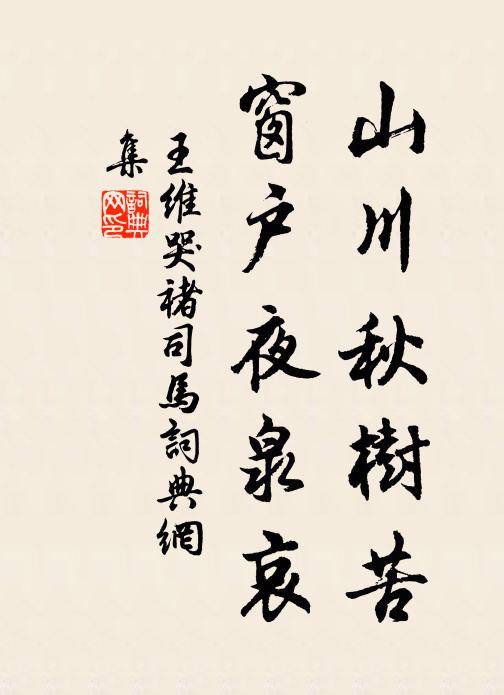 山川秋樹苦
窗戶夜泉哀
王維哭褚司馬詞典網
集
詞典
网印